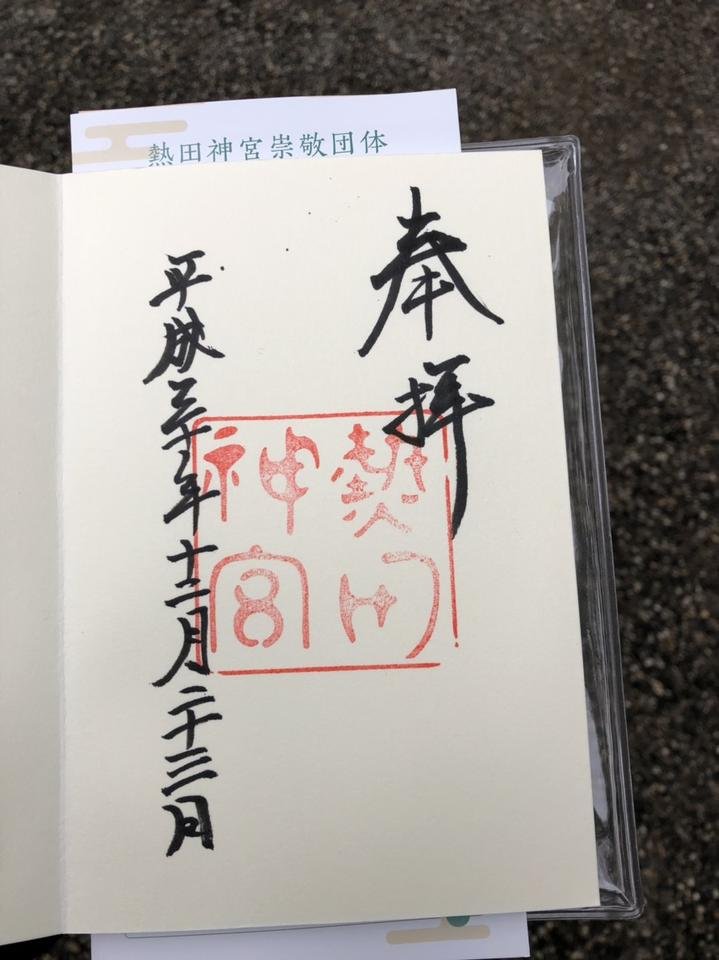 熱田神宮崇敬団体
奉拝
熱田
神宮
平成三十年十二月二十三日